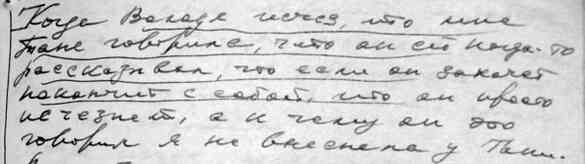 Когда Володя исчез, то мне
Таня говорила, что он ей когда-то
рассказывал, что если он захочет
покончить с собой, то он просто
исчезнет, а к чему он это
говорил я не выяснила у Тани.